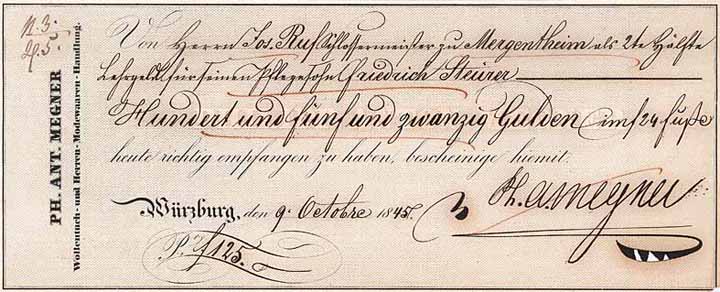 N. 3.
29. 5.
PH. ANT. MEGNER
Wollentuch- und Herren-Modewaaren-Handlung.
Von Herrn Jos. Ruf Schlossermeister zu Mergentheim als 2te Hälfte
Lehrgeld für seinen Pflegesohn Friedrich Steurer
Hundert und fünf und zwanzig Gulden im f 24 Fuße
heute richtig empfangen zu haben, bescheinige hiemit.
Würzburg, den 9. Octobre 1845.
Ph. A. Megner
f 125.